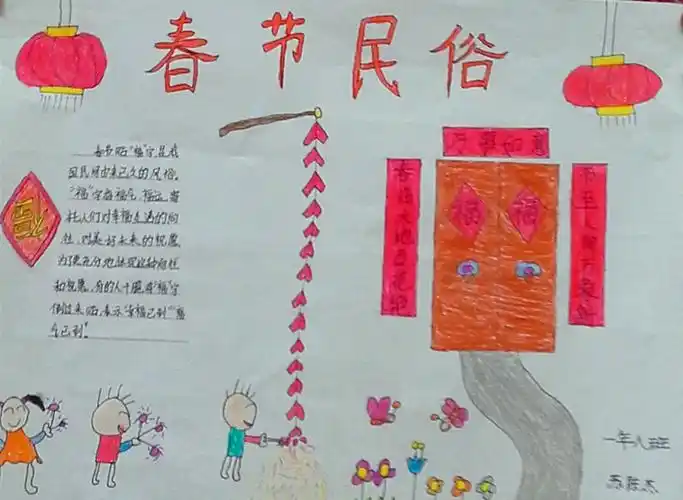 春节民俗
万事如意
春节贴"福"字,是我
国民间由来已久的风俗。
"福"字指福气、福运,寄
托人们对幸福生活的向
往,对美好未来的祝愿。
为了更充分地体现这种向往
和祝愿,有的人干脆将"福"字
倒过来贴,表示"幸福已到""福
气已到"。
福
福
福
春临大地百花艳
节至人间万象新
一年八班